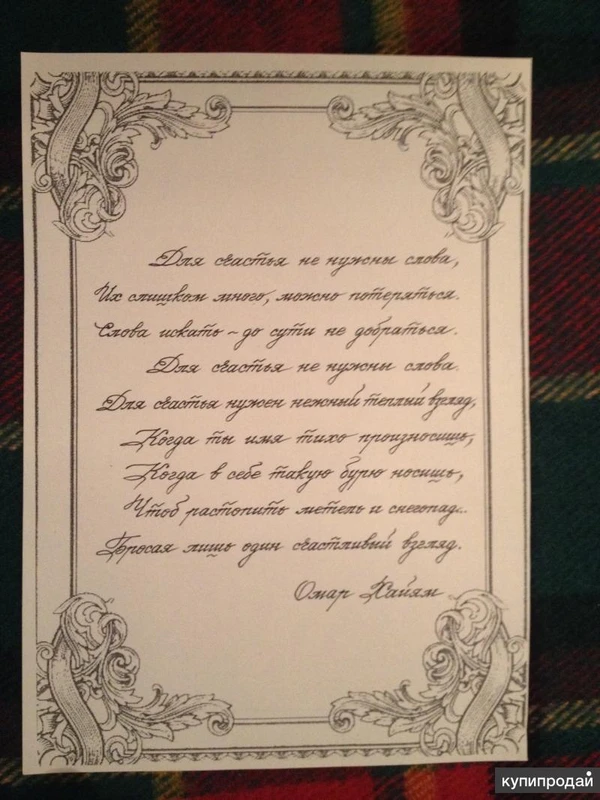 Для счастья не нужны слова,
Их слишком много, можно потеряться.
Слова искать - до сути не добраться.
Для счастья не нужны слова.
Для счастья нужен нежный теплый взгляд,
Когда ты имя тихо произносишь,
Когда в себе такую бурю носишь,
Чтоб растопить метель и снегопад..
Бросая лишь один счастливый взгляд.
Омар Хайям
купипродай